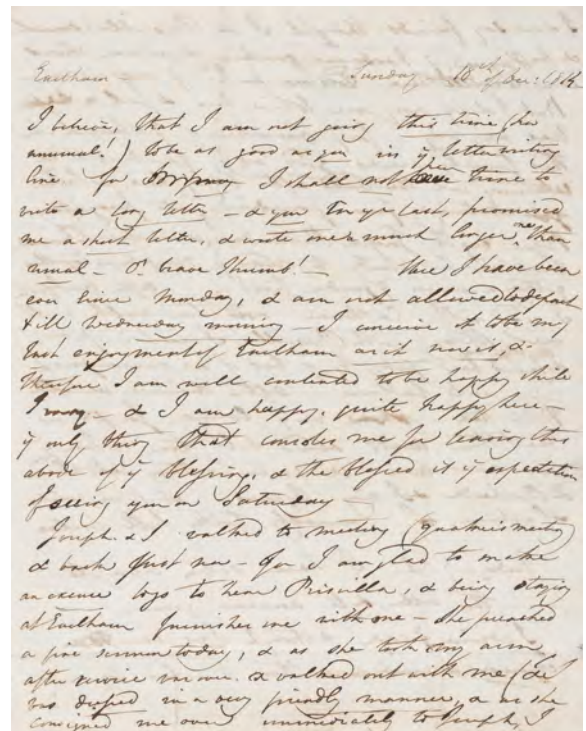 Earlham Sunday 18th of Dec: 1814
I believe, that I am not going this time (how
unusual!) to be as good as you in ye letter writing
line for I shall not have time to
write a long letter – & you in ye last, promised
me a short letter, & wrote me a much longer one than
usual – O! brave Thumb! – Here I have been
ever since Monday, & am not allowed to depart
till Wednesday morning – I conceive it to be my
last enjoyment of Earlham as it now is, &
therefore I am well contented to be happy while
I may – & I am happy, quite happy here –
ye only thing that consoles me for leaving this
above of ye blessing, & the blessed is ye expectation
of seeing you on Saturday –
Joseph & I walked to meeting (quakers meeting)
& back just now – for I am glad to make
an excuse to go to hear Priscilla, & being staying
at Earlham furnishes me with one – She preached
a fine sermon today, & as she took my arm
after service was over & walked out with me (& I
was dressed in a very friendly manner, & as she
consigned me over immediately to Joseph, I